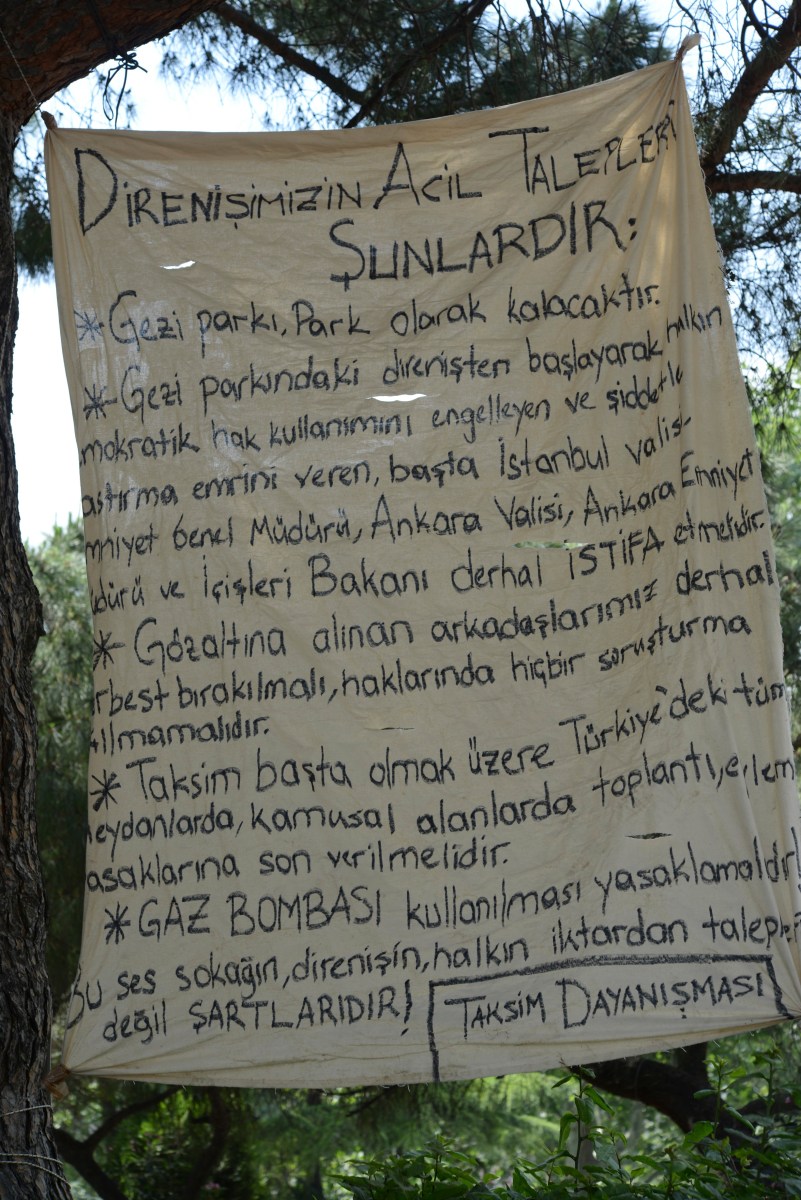 DİRENİŞİMİZİN ACİL TALEPLERİ
ŞUNLARDIR:
* Gezi parkı, Park olarak kalacaktır.
* Gezi parkındaki direnişten başlayarak halkın
mokratik hak kullanımını engelleyen ve şiddetle
astırma emrini veren, başta İstanbul valisi
mniyet Genel Müdürü, Ankara Valisi, Ankara Emniyet
üdürü ve İçişleri Bakanı derhal İSTİFA etmelidir.
* Gözaltına alınan arkadaşlarımız derhal
rbest bırakılmalı, haklarında hiçbir soruşturma
ılmamalıdır.
* Taksim başta olmak üzere Türkiye'deki tüm
eydanlarda, kamusal alanlarda toplantı, eylem
asaklarına son verilmelidir.
* GAZ BOMBASI kullanılması yasaklamalıdır!
Bu ses sokağın, direnişin, halkın iktardan talepleri
değil ŞARTLARIDIR!
TAKSİM DAYANIŞMASI